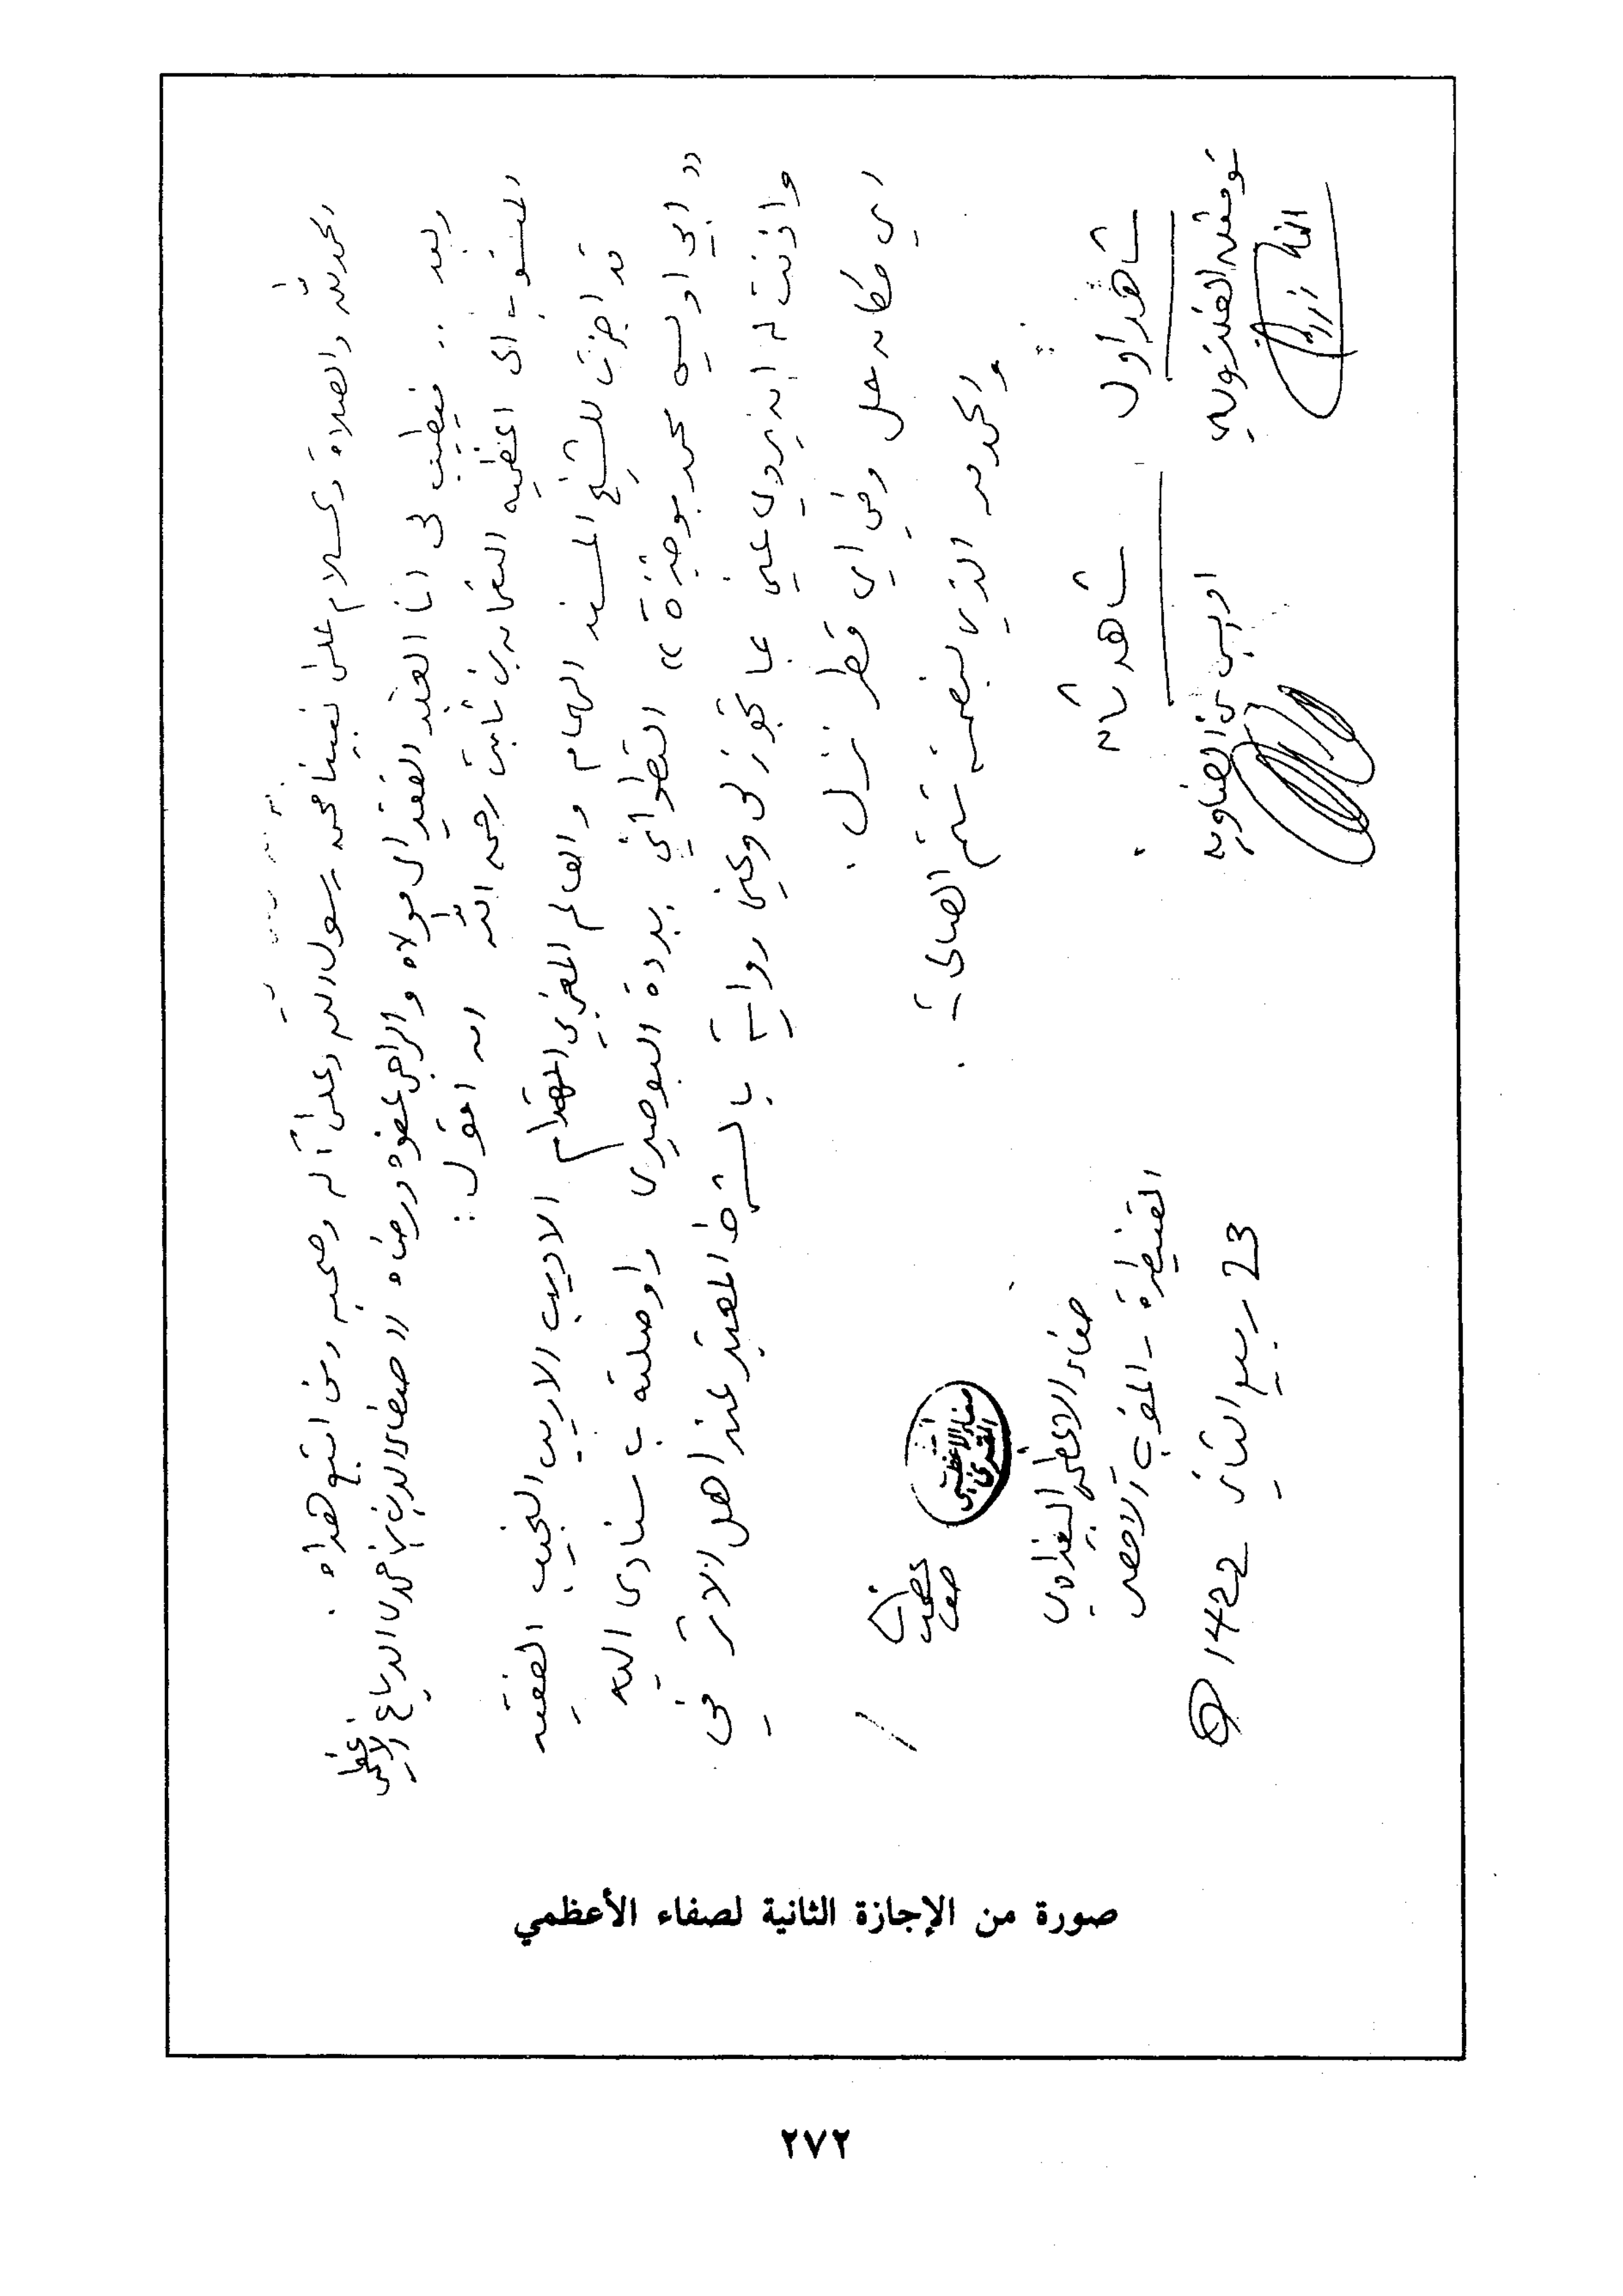 الحمد لله والصلاة والسلام على نبينا محمد رسول الله وعلى آله وصحبه ومن اتبع هداه .
وبعد .. فيطيب لي انا العبد الفقير الى مولاه والراجي عفوه ورضاه (( صفاء الدين بن حمدي الدباغ الاعظمي
المنسوب الى اعظمية النعمان بن ثابت رحمه الله ان اقول :
قد اجزت للشيخ المسند الهمام والعالم المغربي المقدام الاديب الاريب النجيب الفقيه
« ابي اويس محمد بوخبزة » التطواني ببردة البوصيري واوصلته باسنادي اليه
واذنت له ان يروي عني بما تجوز لي وعني رواية بالشرط المعتبر عند اهل الاثر في
اي مكان حل وفي اي قطر نزل .
والحمد لله الذي بنعمته تتم الصالحات .
صفاء الاعظمي البغدادي
القنيطرة - المغرب الاقصى
23 ربيع الثاني 1422
شاهد اول
توفيق الغندولي
شاهد ثان
صورة من الإجازة الثانية لصفاء الأعظمي
٢٧٢